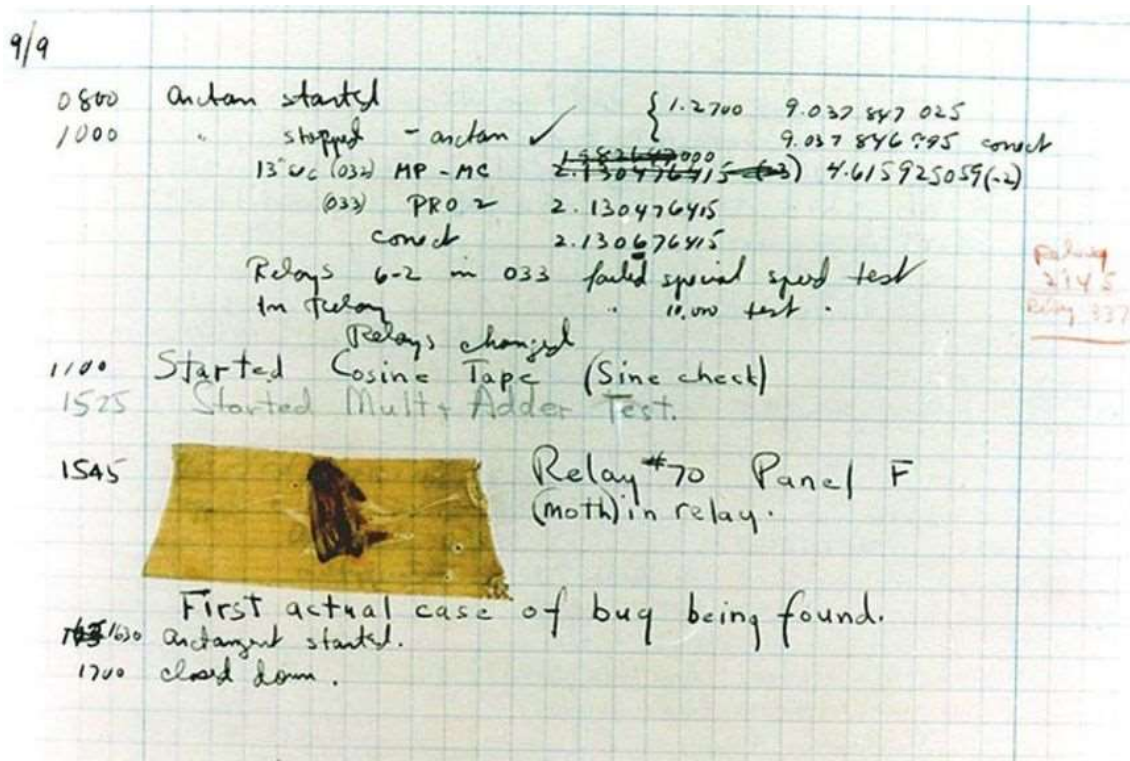 9/9
0800 arctan started { 1.2700 9.037 847 025
1000 " stopped - arctan ✓ 9.037 846 795 correct
13"uc (032) MP - MC 2.130476415 (-3) 4.615925059(-2)
(033) PRO 2 2.130476415
correct 2.130676415
Relays 6-2 in 033 failed special speed test
In Relay " 10,000 test .
Relay
2145
Relay 337
Relays changed
1100 Started Cosine Tape (Sine check)
1525 Started Mult + Adder Test.
1545 Relay #70 Panel F
(moth) in relay.
First actual case of bug being found.
1630 arctangent started.
1700 closed down .